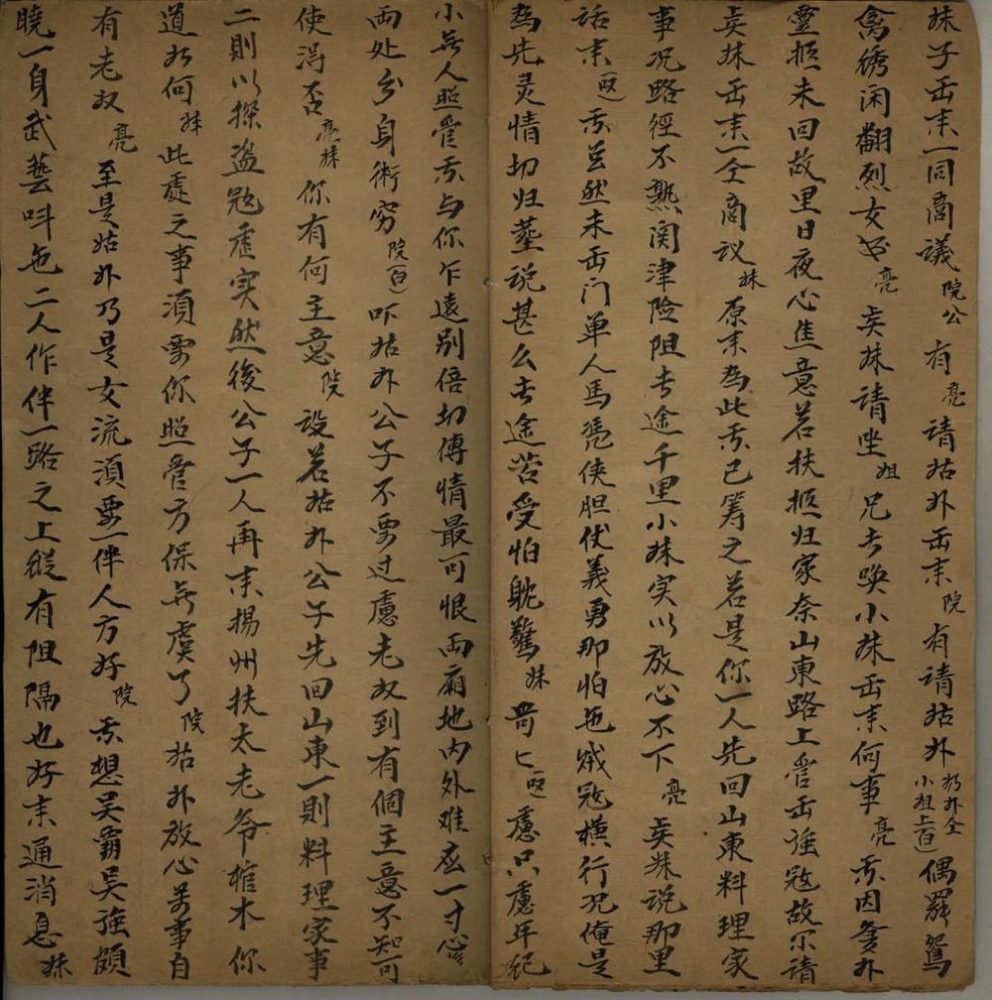 妹子出来一同商議 院公 有 亮 請姑外出来 院 有請姑外 小姐上白 偶罷鴛
禽綉闲翻烈女 亮 矣妹請坐 姐 兄台喚小妹出来何事 亮 吾因爹外
靈柩未回故里日夜心焦意若扶柩归家奈山東路上曾出強寇故尔請
矣妹出来一仝商议 妹 原来為此吾已筹之若是你一人先回山東料理家
事况路徑不熟関津险阻去途千里小妹实以放心不下 亮 矣妹説那里
話来 吾虽然未出门单人馬凭侠胆仗義勇那怕他贼寇横行况俺是
為先灵情切归塟说甚么去途苦受怕躭驚 妹 哥匕 慮只慮年纪
小無人照管吾与你乍遠别倍切傳情最可恨兩廂地内外难应一寸心
兩处分身術穷 院白 吓姑外公子不要过慮老奴到有個主意不知可
使得否 亮妹 你有何主意 院 设若姑外公子先回山東一則料理家事
二則以探盗寇虚实然後公子一人再来揚州扶太老爷棺木你
道如何 妹 此處之事須要你照管方保無虞了 院 姑外放心万事自
有老奴 亮 至是姑外乃是女流須要一伴人方好 院 吾想吴霸吴強頗
曉一身武藝叫他二人作伴一路之上縱有阻隔也好来通消息 妹